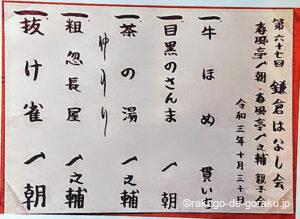 第六十七回 鎌倉はなし会
春風亭一朝・春風亭一之輔 親子
令和三年十月三十
一 牛ほめ 貫いち
一 目黒のさんま 一朝
一 茶の湯 一之輔
一 粗忽長屋 一之輔
一 抜け雀 一朝
©rakugo-de-goraku.jp